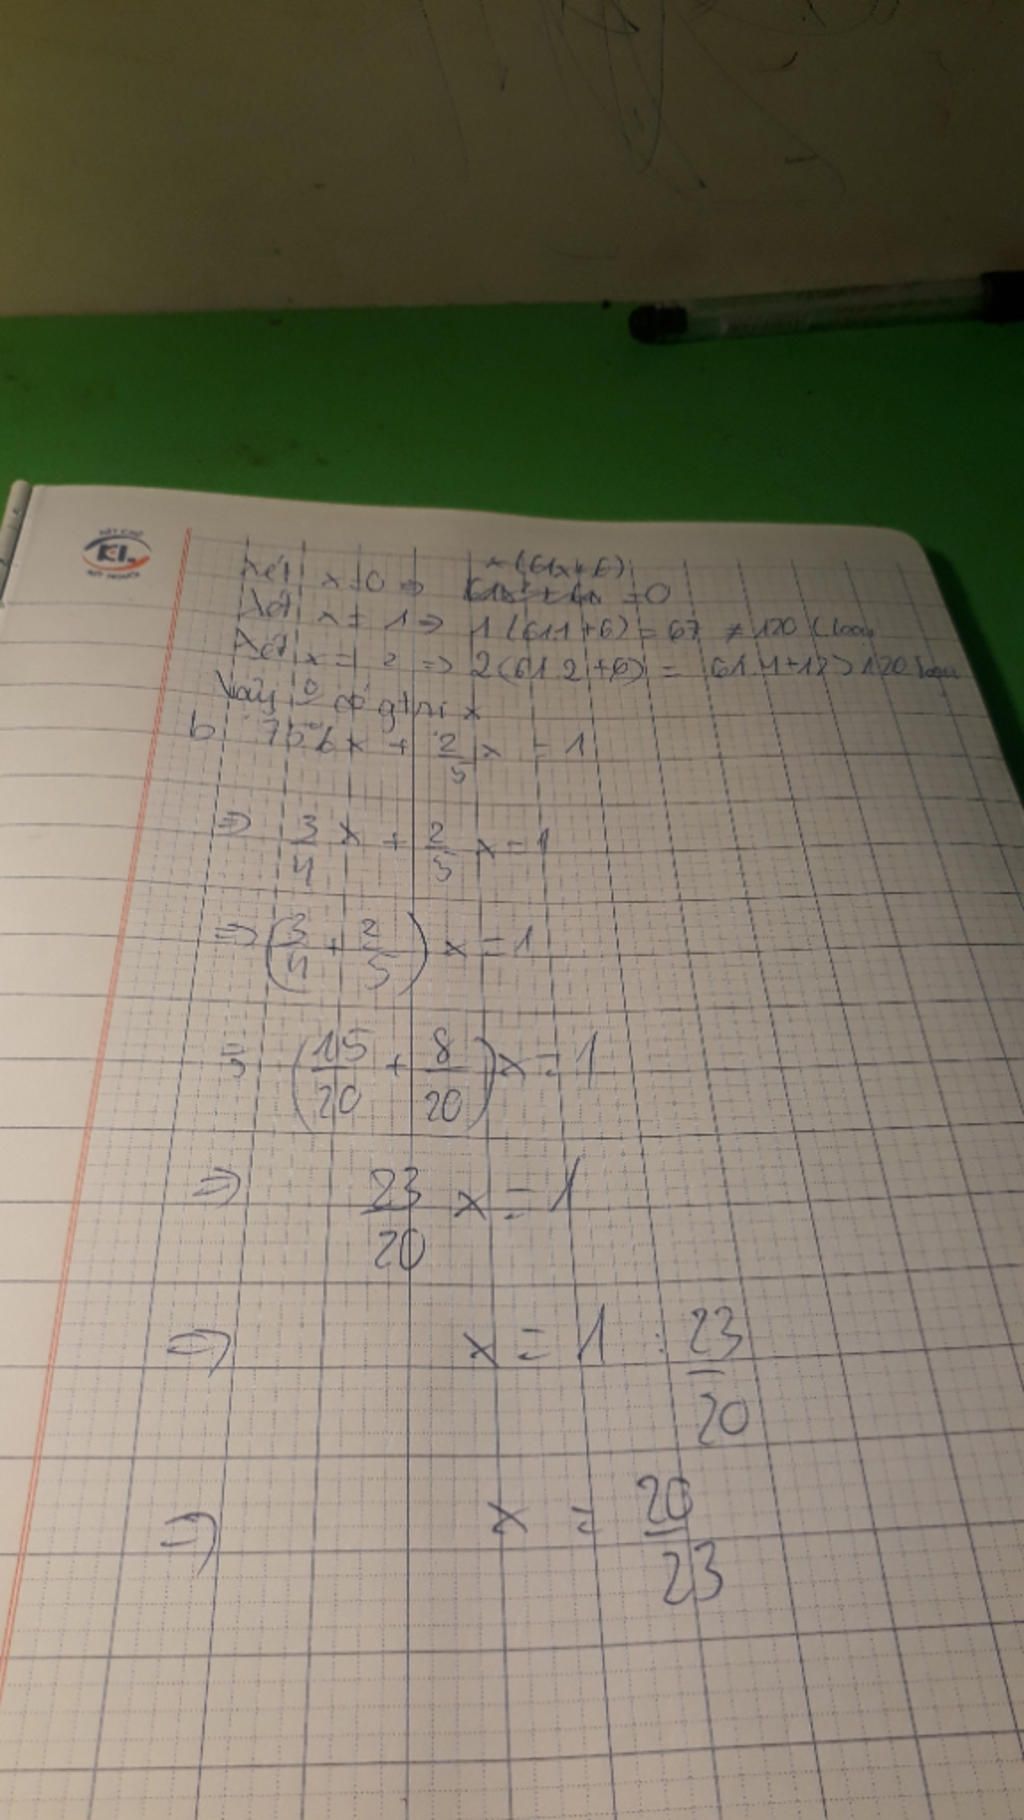 KL
x(61x+6)
Xét x=0 => = 0
Xét x = 1 => 1(61.1+6) = 67 ≠ 120 (loại
Xét x = 2 => 2(61.2+6) = 61.4+12 > 120 loại
Vậy 0 có gtri x
b 75% x + 2/5 x = 1
=> 3/4 x + 2/5 x = 1
=> (3/4 + 2/5) x = 1
(15/20 + 8/20) x = 1
=> 23/20 x = 1
=> x = 1 : 23/20
=> x = 20/23